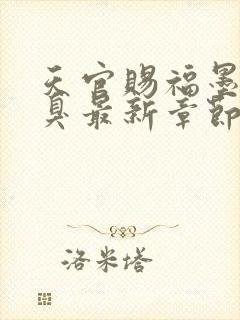 天官賜福墨
臭最新章節
洛米塔